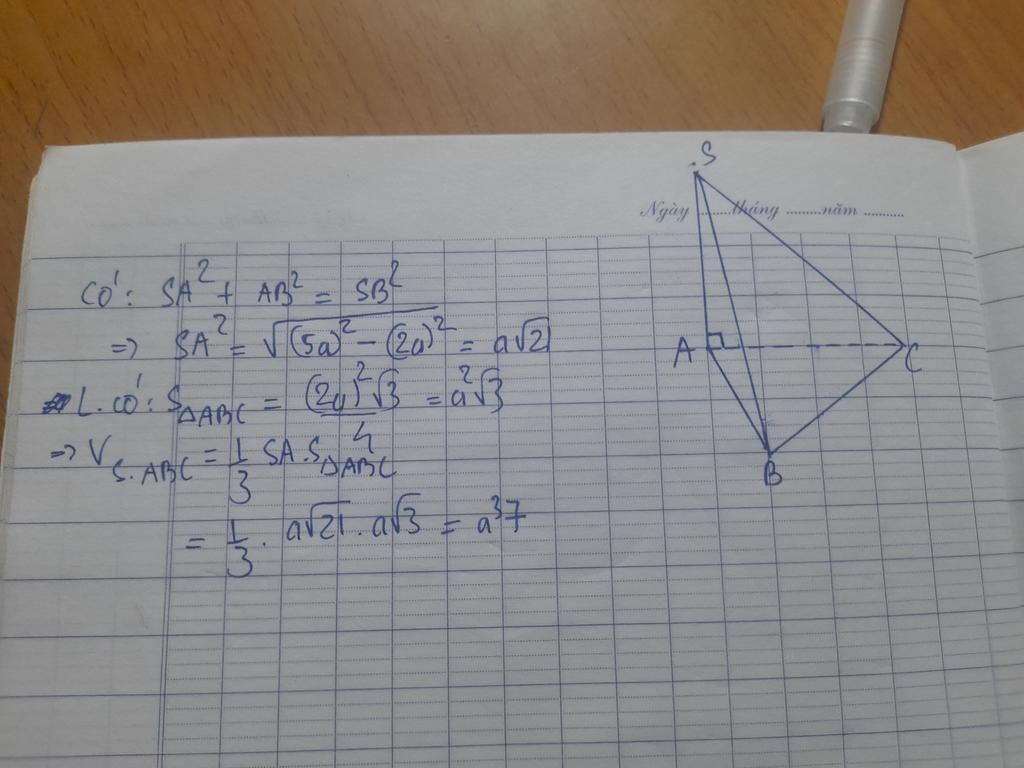 S
Ngày ........tháng ........năm ..........
Có: SA² + AB² = SB²
=> SA² = √((5a)² - (2a)²) = a√21
L.có: S△ABC = (2a)²√3 / 4 = a²√3
=> V S.ABC = 1/3 SA.S△ABC
= 1/3 . a√21 . a√3 = a³7
A
C
B